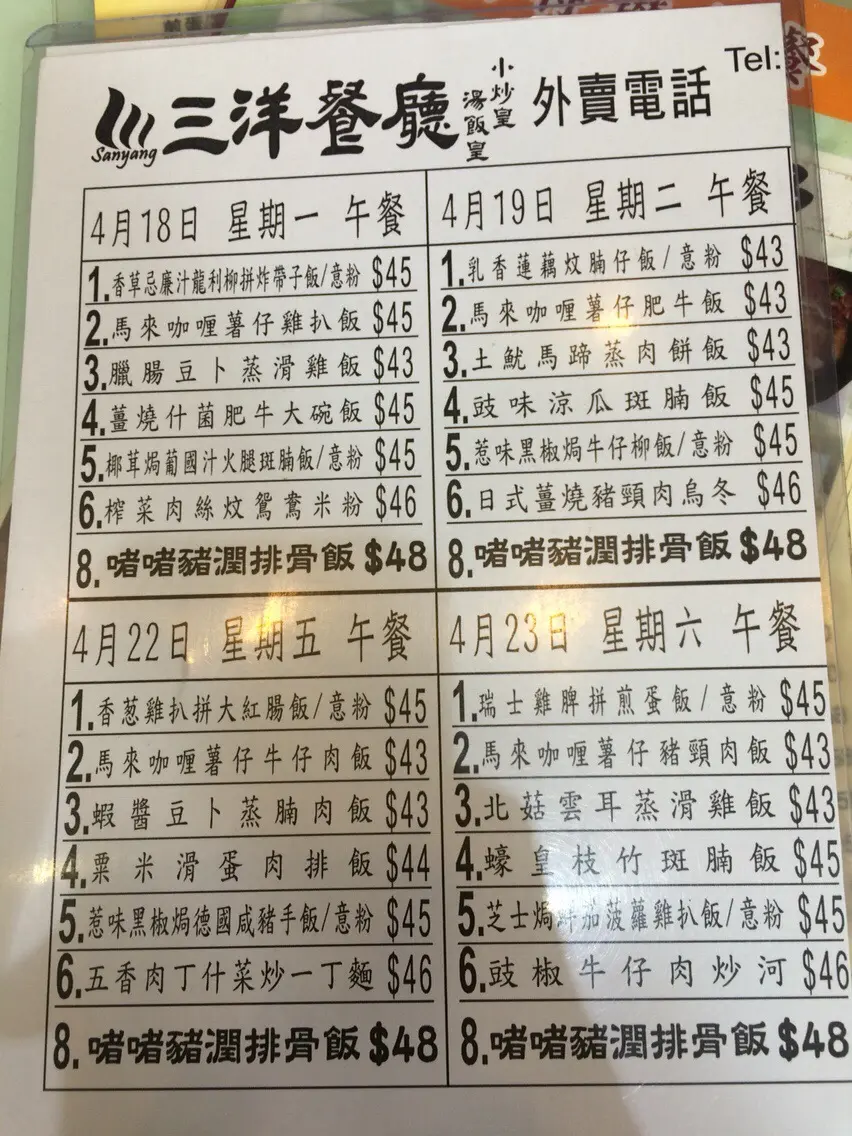 Sanyang
三洋餐廳
小炒皇
湯飯皇
外賣電話
Tel:
4月18日 星期一 午餐
1.香草忌廉汁龍利柳拼炸帶子飯/意粉 $45
2.馬來咖喱薯仔雞扒飯 $45
3.臘腸豆卜蒸滑雞飯 $43
4.薑燒什菌肥牛大碗飯 $45
5.椰茸焗葡國汁火腿斑腩飯/意粉 $45
6.榨菜肉絲炆鴛鴦米粉 $46
8.啫啫豬潤排骨飯 $48
4月19日 星期二 午餐
1.乳香蓮藕炆腩仔飯/意粉 $43
2.馬來咖喱薯仔肥牛飯 $43
3.土魷馬蹄蒸肉餅飯 $43
4.豉味涼瓜斑腩飯 $45
5.惹味黑椒焗牛仔柳飯/意粉 $45
6.日式薑燒豬頸肉烏冬 $46
8.啫啫豬潤排骨飯 $48
4月22日 星期五 午餐
1.香葱雞扒拼大紅腸飯/意粉 $45
2.馬來咖喱薯仔牛仔肉飯 $43
3.蝦醬豆卜蒸腩肉飯 $43
4.粟米滑蛋肉排飯 $44
5.惹味黑椒焗德國咸豬手飯/意粉 $45
6.五香肉丁什菜炒一丁麵 $46
8.啫啫豬潤排骨飯 $48
4月23日 星期六 午餐
1.瑞士雞脾拼煎蛋飯/意粉 $45
2.馬來咖喱薯仔豬頸肉飯 $43
3.北菇雲耳蒸滑雞飯 $43
4.蠔皇枝竹斑腩飯 $45
5.芝士焗鮮茄菠蘿雞扒飯/意粉 $45
6.豉椒牛仔肉炒河 $46
8.啫啫豬潤排骨飯 $48